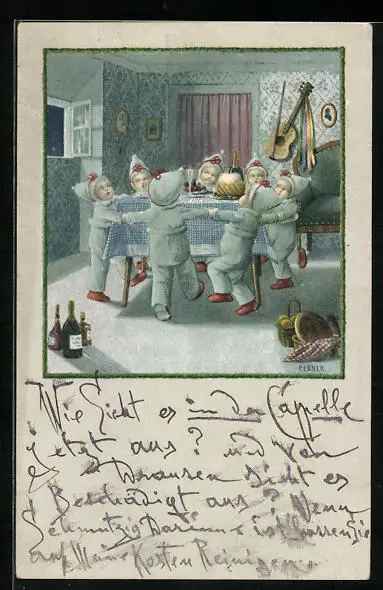 P. EBNER.
Wie Sieht es in der Cappelle
jetzt aus? und von
draussen sieht es
Beschädigt aus? Wenn
Schmutzig Darinne ist lassen Sie
auf Meine Kosten Reinigen.